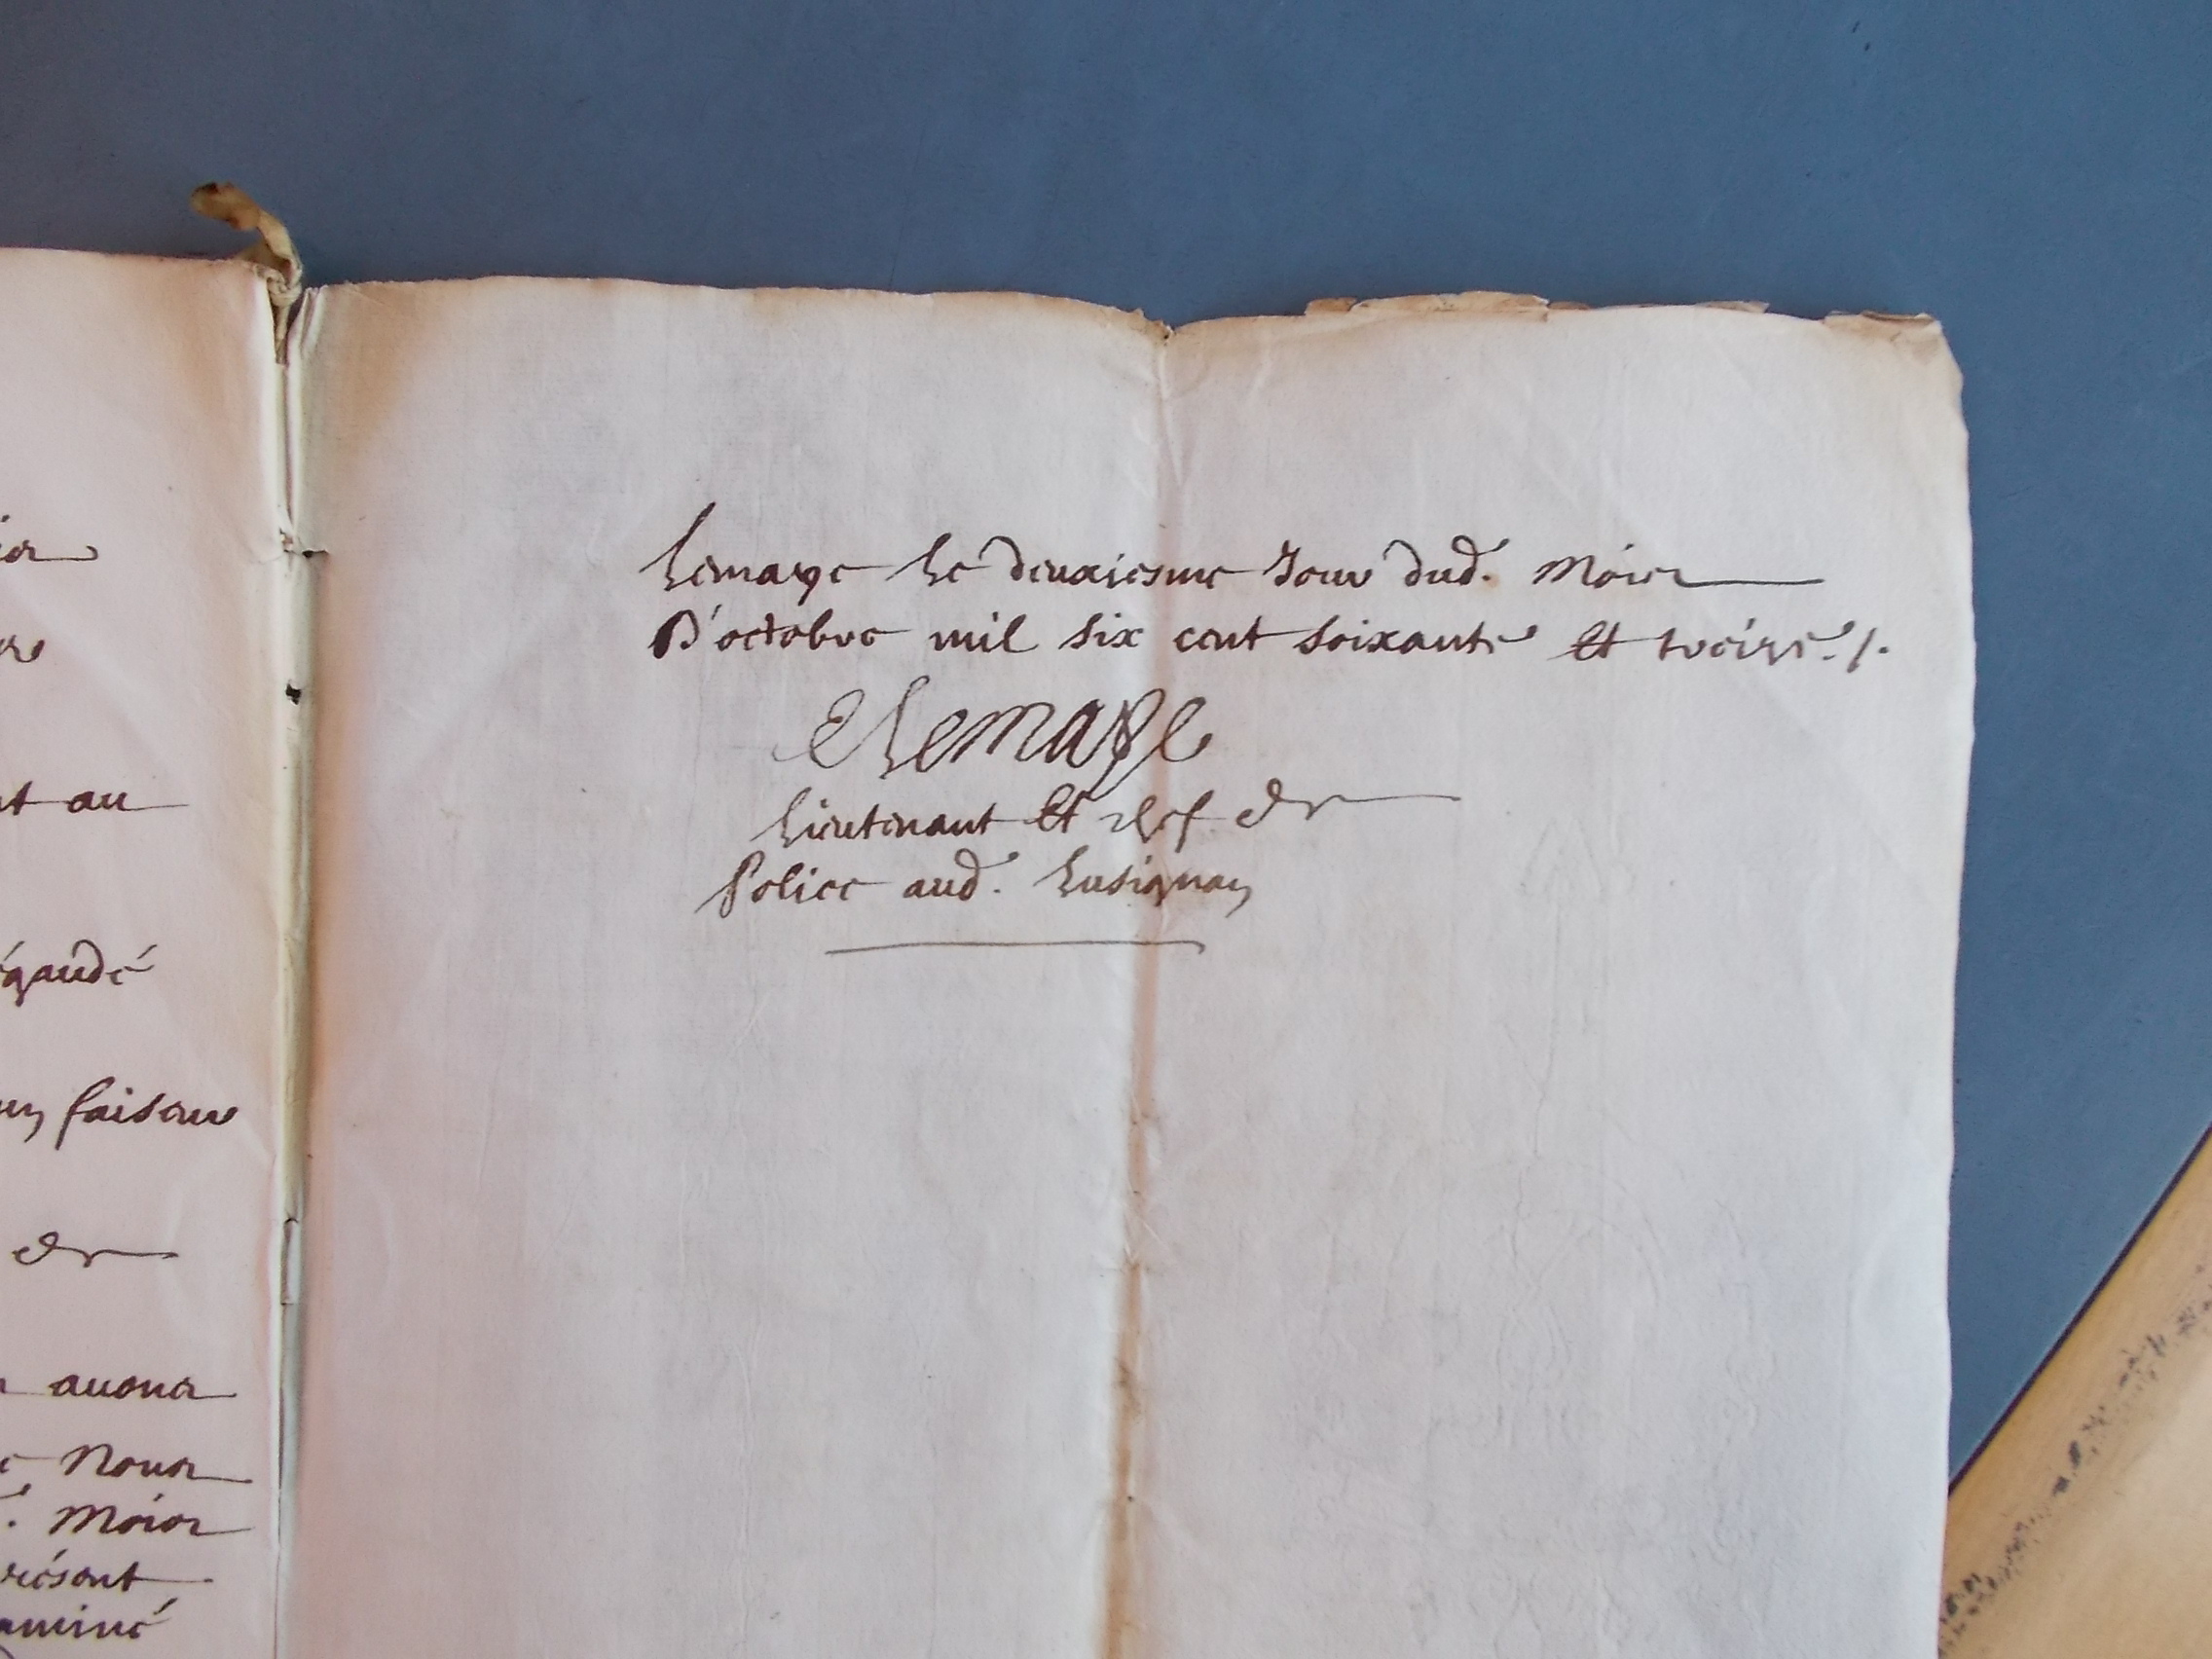 au
égaudé
faiseur
de
auons
Nous
Mois
Lemaye le deuxiesme Jour dud. Mois
D'octobre mil six cent soixante et treize./.
Lemaye
Lieutenant et chef de
Police aud. Lusignan